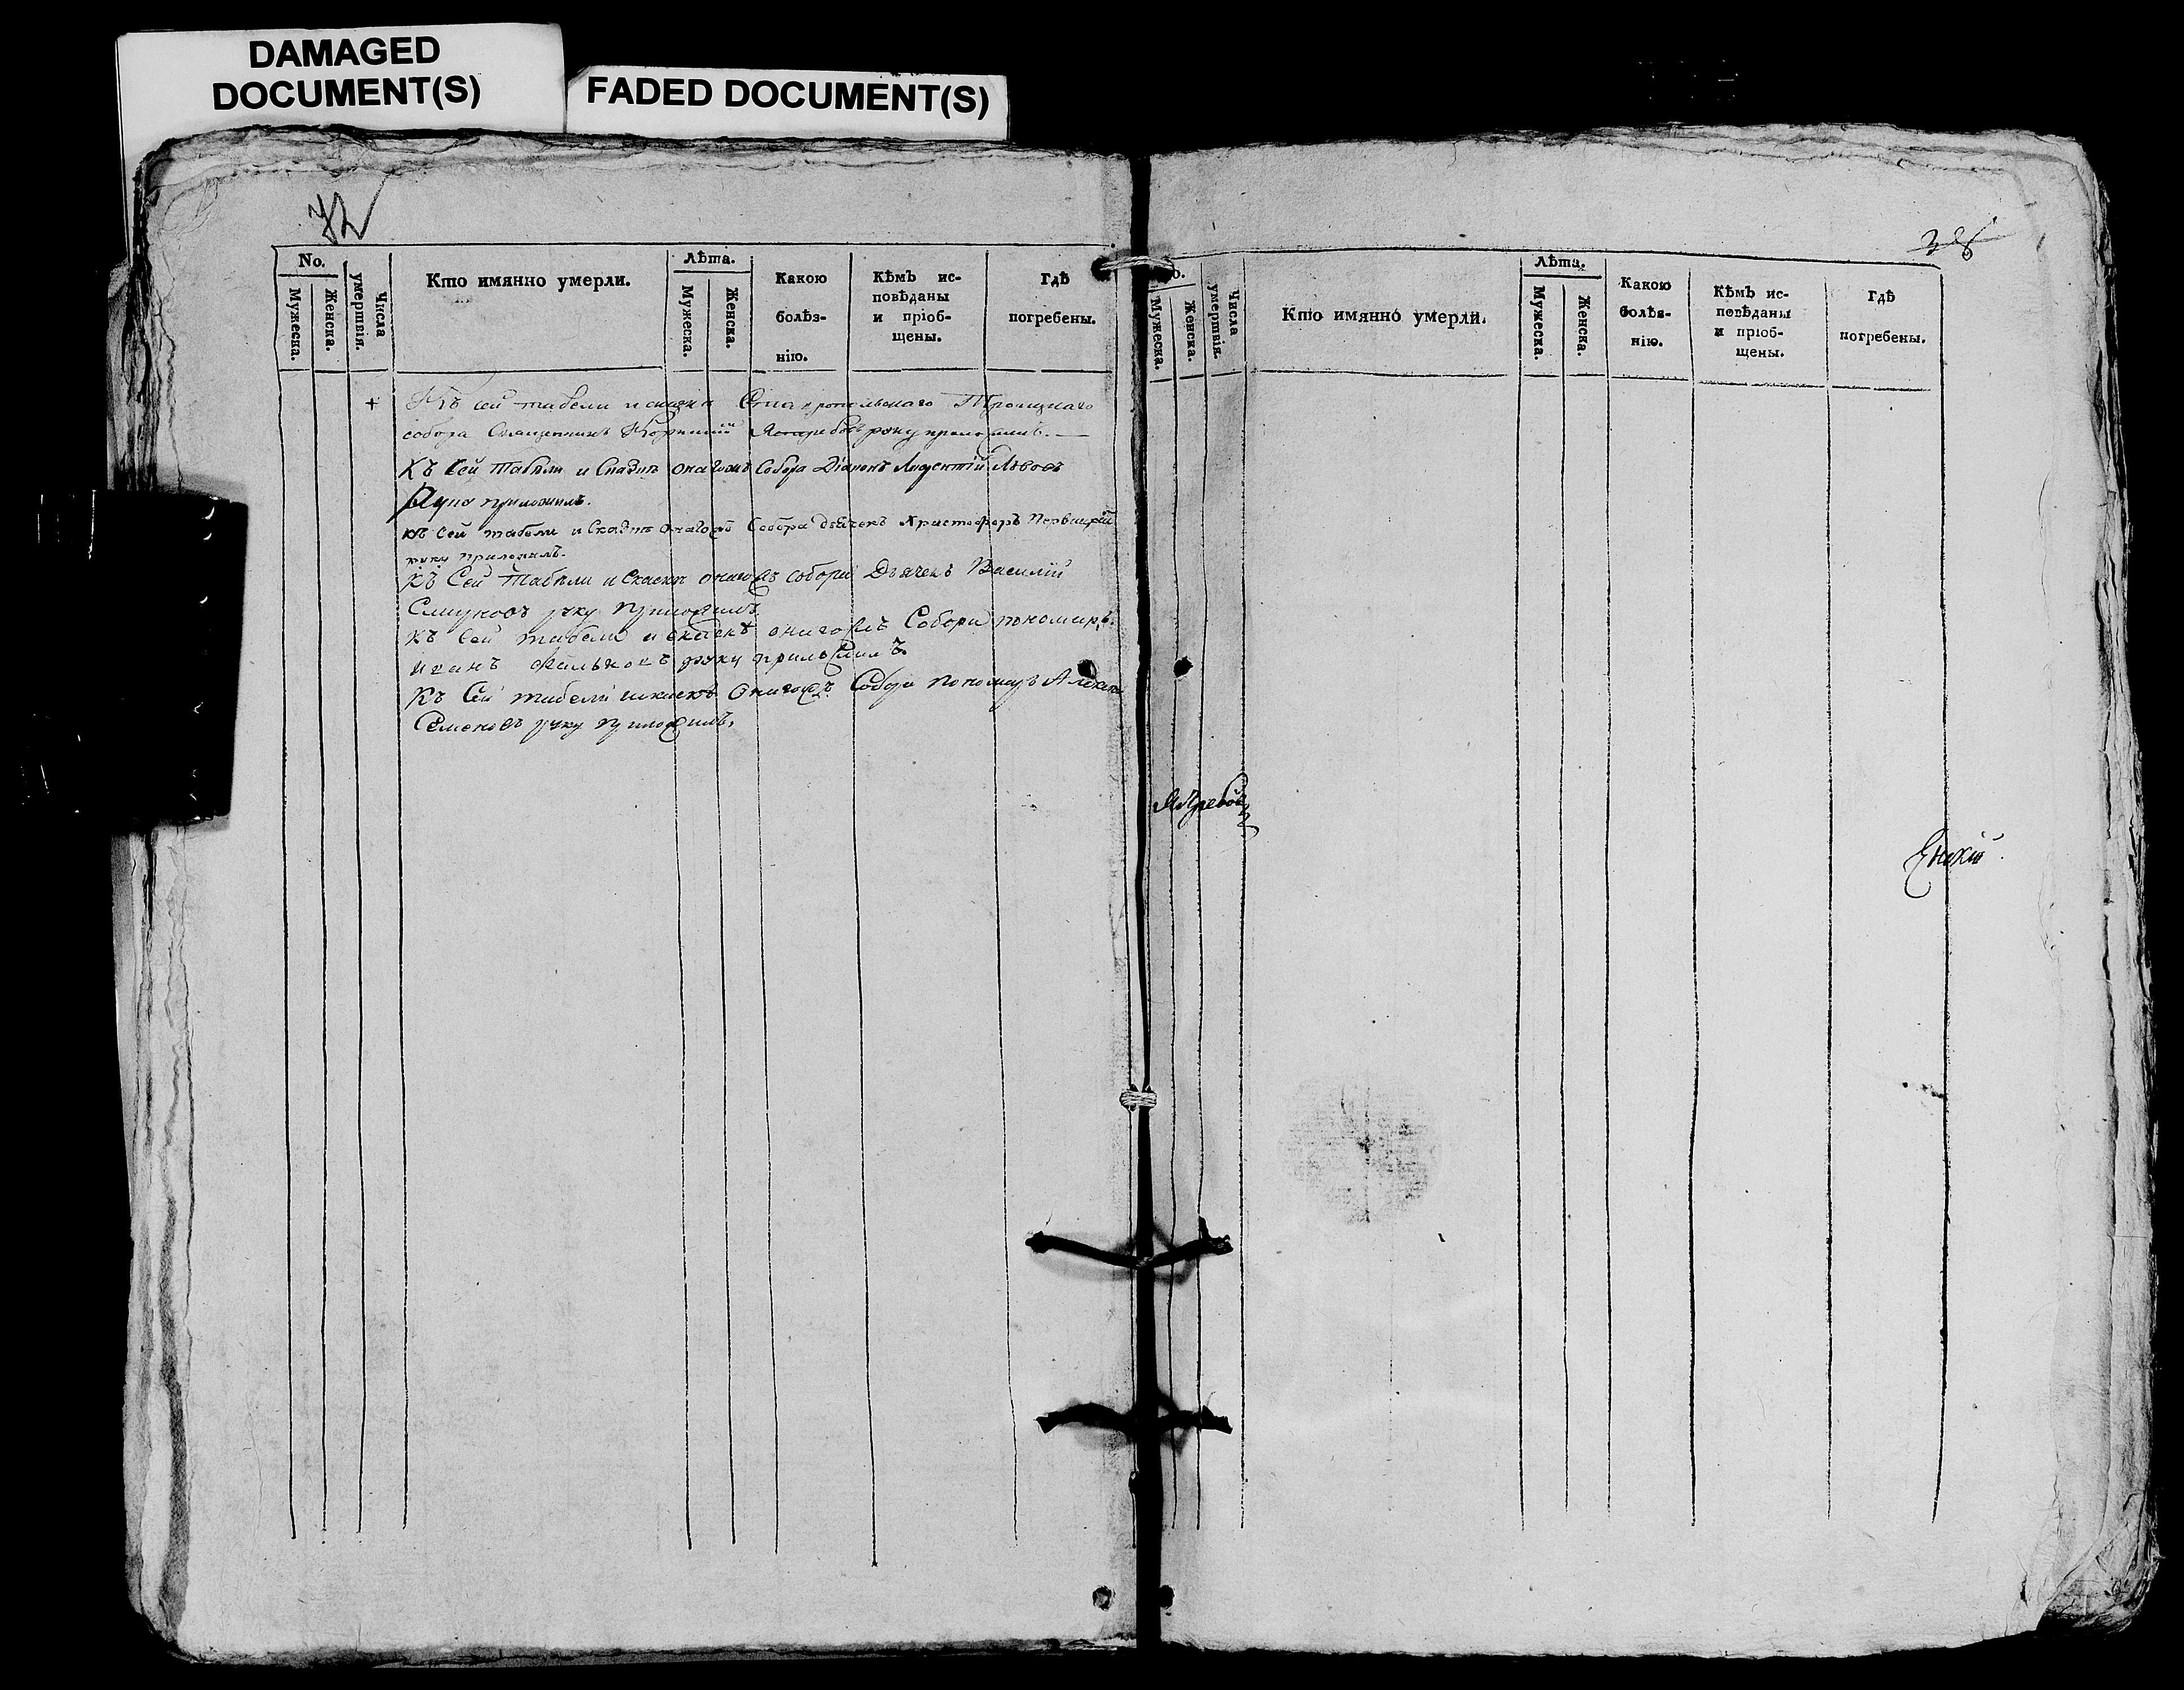 DAMAGED
DOCUMENT(S)
FADED DOCUMENT(S)
72
No.
Мужеска.
Женска.
Числа
умертвія.
Кто имянно умерли.
Лѣта.
Мужеска.
Женска.
Какою
болѣз-
нію.
Кѣмъ ис-
повѣданы
и пріоб-
щены.
Гдѣ
погребены.
+
Къ сей табели и сказкѣ Троицкаго
собора Священникъ Ястребовъ руку приложилъ.
Къ Сей табели и Сказкѣ онагожъ Собора Діаконъ Лаврентій Львовъ
Руку приложилъ.
къ Сей табели и Сказкѣ онагожъ Собора дьячекъ Христофоръ
руку приложилъ.
Къ Сей табели и Скаскѣ онагожъ собора Дьячекъ Василій
руку приложилъ
къ Сей табели и скаскѣ онагожъ Собора пономарь
иванъ руку приложилъ.
Къ Сей табели искаскѣ Онагожъ Собора пономарь
Семеновъ руку приложилъ.
Мужеска.
Женска.
Числа
умертвія.
Кто имянно умерли.
Лѣта.
Мужеска.
Женска.
Какою
болѣз-
нію.
Кѣмъ ис-
повѣданы
и пріоб-
щены.
Гдѣ
погребены.